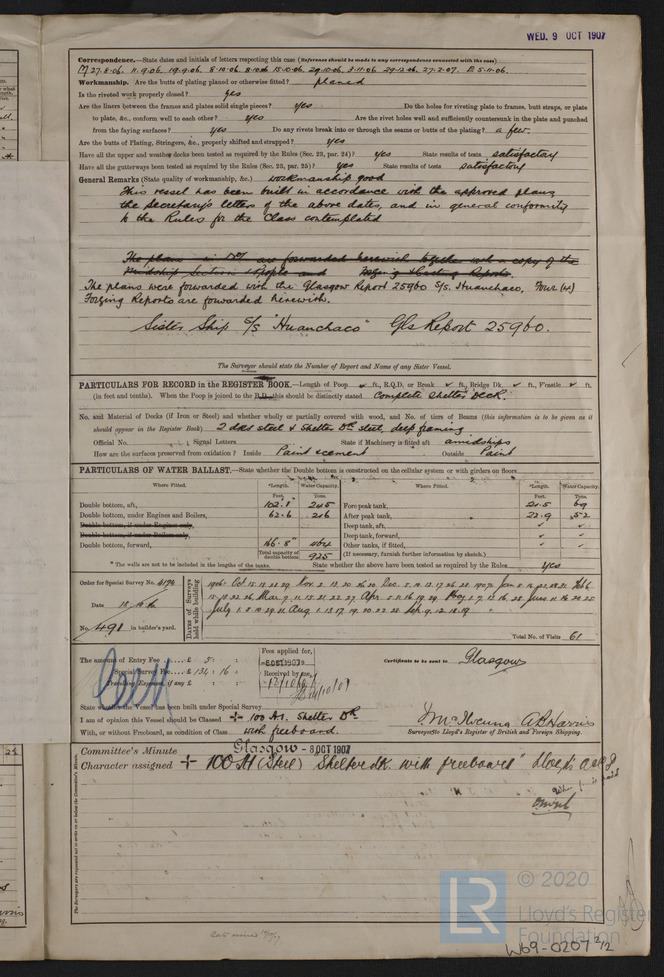 WED. 9 OCT 1907
Correspondence.—State dates and initials of letters respecting this case (Reference should be made to any correspondence connected with the case)
M 27.8.06. 11.9.06. 19.9.06. 8.10.06. 8.10.06 15.10.06. 29.10.06. 3.11.06. 29.12.06. 27.2.07. E 5.11.06.
Workmanship. Are the butts of plating planed or otherwise fitted? planed
Is the riveted work properly closed? yes
Are the liners between the frames and plates solid single pieces? yes Do the holes for riveting plate to frames, butt straps, or plate
to plate, &c., conform well to each other? yes Are the rivet holes well and sufficiently countersunk in the plate and punched
from the faying surfaces? yes Do any rivets break into or through the seams or butts of the plating? a few.
Are the butts of Plating, Stringers, &c., properly shifted and strapped? yes
Have all the upper and weather decks been tested as required by the Rules (Sec. 23, par. 24)? yes State results of tests satisfactory
Have all the gutterways been tested as required by the Rules (Sec. 23, par. 25)? yes State results of tests satisfactory
General Remarks (State quality of workmanship, &c.) workmanship good
This vessel has been built in accordance with the approved plans
the Secretary's letters of the above dates, and in general conformity
to the Rules for the Class contemplated
The plans in are forwarded herewith together with a copy of the
Midship Section & Profile and Forging & Casting Reports.
The plans were forwarded with the Glasgow Report 25960 S/S. Huanchaco, Four (4)
Forging Reports are forwarded herewith.
Sister Ship S/S "Huanchaco" Gls Report 25960.
The Surveyor should state the Number of Report and Name of any Sister Vessel.
PARTICULARS FOR RECORD in the REGISTER BOOK.—Length of Poop ft., R.Q.D. or Break ft., Bridge Dk. ft., F'castle ft.
(in feet and tenths). When the Poop is joined to the B.D., this should be distinctly stated. Complete Shelter Deck.
No. and Material of Decks (if Iron or Steel) and whether wholly or partially covered with wood, and No. of tiers of Beams (this information is to be given as it
should appear in the Register Book) 2 dks steel & Shelter Dk steel, deep framing
Official No. Signal Letters State if Machinery is fitted aft amidships
How are the surfaces preserved from oxidation? Inside Paint & cement Outside Paint
PARTICULARS OF WATER BALLAST.—State whether the Double bottom is constructed on the cellular system or with girders on floors
Where Fitted. *Length. Water Capacity. Where Fitted. *Length. Water Capacity.
Feet. Tons. Feet. Tons.
Double bottom, aft, 102.8" 245 Fore peak tank, 20.5 69
Double bottom, under Engines and Boilers, 62.6 216 After peak tank, 22.9 52
Double bottom, if under Engines only, Deep tank, aft,
Double bottom, if under Boilers only, Deep tank, forward,
Double bottom, forward, 166.8" 464 Other tanks, if fitted,
Total capacity of double bottom 925 (If necessary, furnish further information by sketch.)
* The wells are not to be included in the lengths of the tanks. State whether the above have been tested as required by the Rules yes
Order for Special Survey No. 4194
Date 15.10.06
No. 491 in builder's yard.
Dates of Surveys held while building
Total No. of Visits 61
The amount of Entry Fee £ 5 : :
Special Survey Fee £ 134 : 16
Travelling Expenses, if any £
Fees applied for,
8 OCT 1907
Received by me,
12/10/07
Certificate to be sent to Glasgow
State whether the Vessel has been built under Special Survey
I am of opinion this Vessel should be Classed + 100 A1. Shelter Dk
With, or without Freeboard, as condition of Class with freeboard.
A B Harris
Surveyors to Lloyd's Register of British and Foreign Shipping.
Committee's Minute Glasgow - 8 OCT 1907
Character assigned + 100 A1 (Steel) Shelter dk. with freeboard Lloyd's A & C P
The Surveyors are requested not to write on or below the Committee's Minute.
© 2020
LR Lloyd's Register
Foundation
W69-0207 2/2